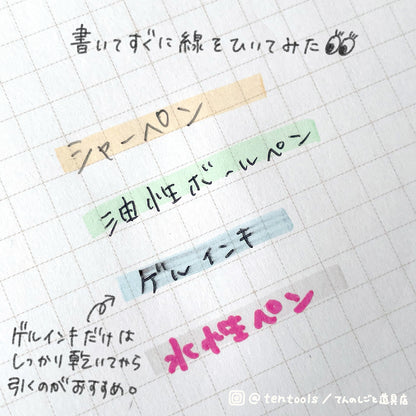 書いてすぐに線をひいてみた
シャーペン
油性ボールペン
ゲルインキ
水性ペン
ゲルインキだけは
しっかり乾いてから
引くのがおすすめ。
@tentools/てんのしごと道具店